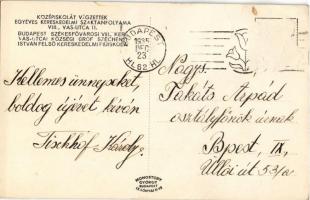 KÖZÉPISKOLÁT VÉGZETTEK
EGYÉVES KERESKEDELMI SZAKTANFOLYAMA
VIII., VAS-UTCA 11.
BUDAPEST SZÉKESFŐVÁROSI VIII. KER.
VAS-UTCAI KÖZSÉGI GRÓF SZÉCHENYI
ISTVÁN FELSŐ KERESKEDELMI FIÚISKOLA
BUDAPEST
1935
DEC
23
HL 62 HL
Kellemes ünnepeket,
boldog újévet kíván
Fischhof Károly.
Nagys.
Takáts Árpád
osztályfőnök úrnak
Bpest, IX.,
Üllői út 53/a
MONOSTORY
GYÖRGY
BUDAPEST